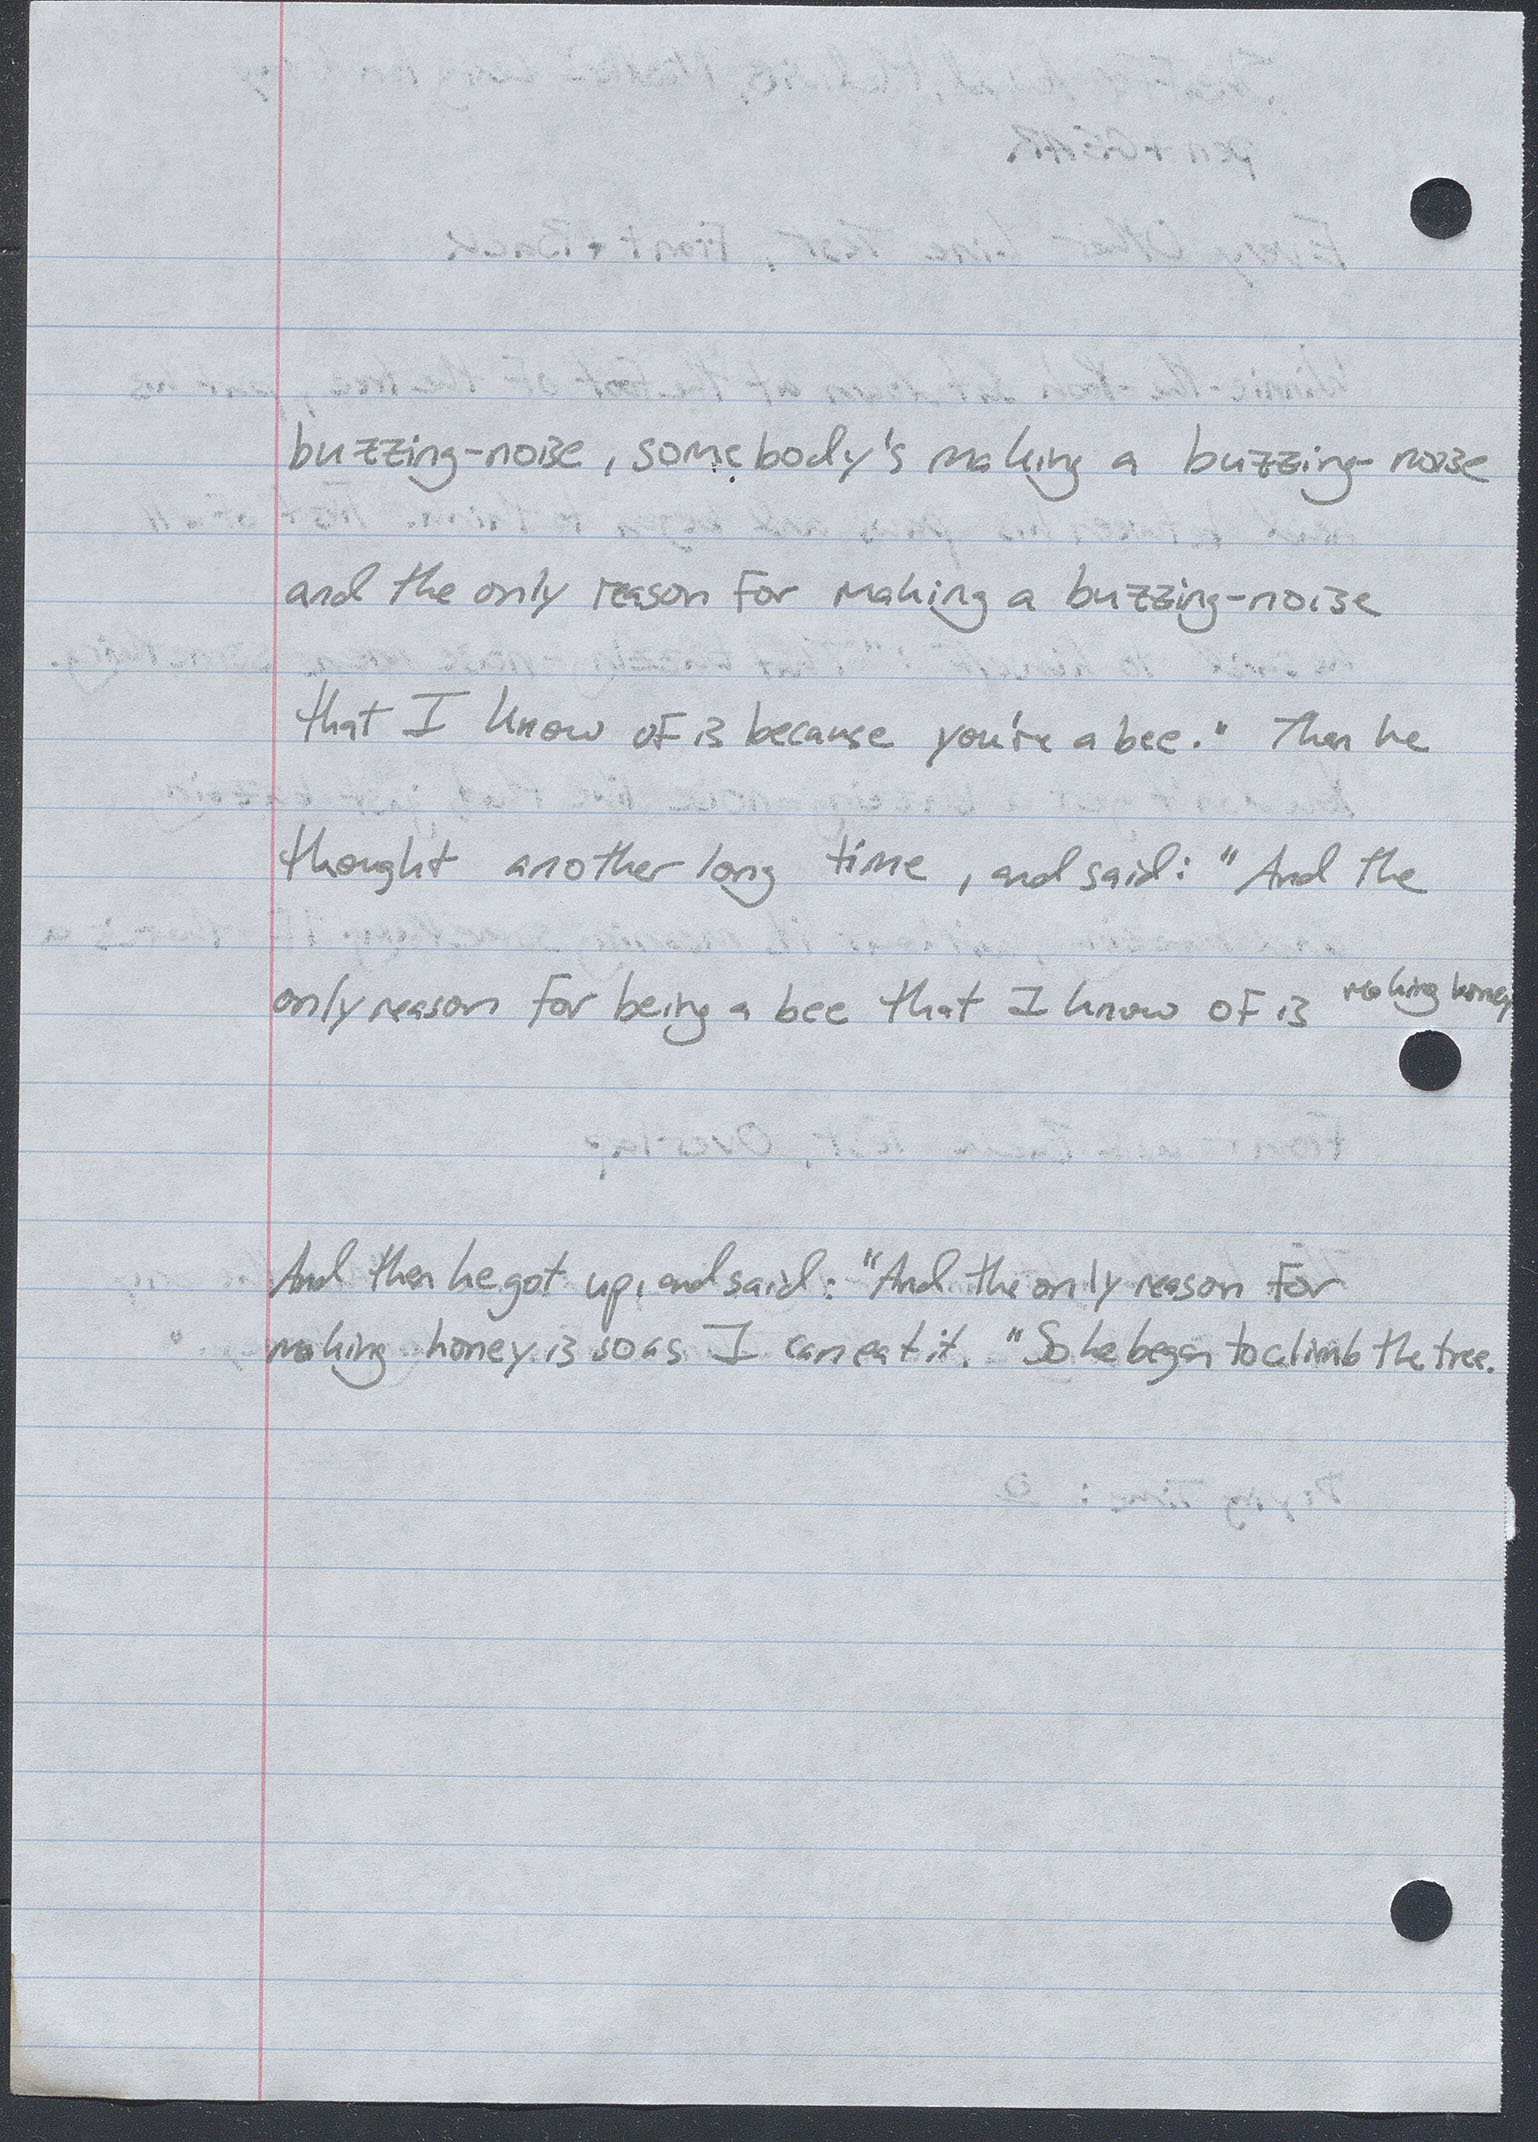 buzzing-noise, somebody's making a buzzing-noise
and the only reason for making a buzzing-noise
that I know of is because you're a bee." Then he
thought another long time, and said: "And the
only reason for being a bee that I know of is making honey
And then he got up, and said: "And the only reason for
making honey is so as I can eat it. "So he began to climb the tree.